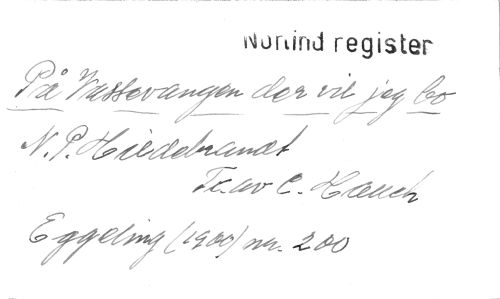 Norlind register
På Vassevangen der vil jeg bo
N. P. Hildebrandt
Tr. av C. Hauch
Eggeling (1900) nr. 200